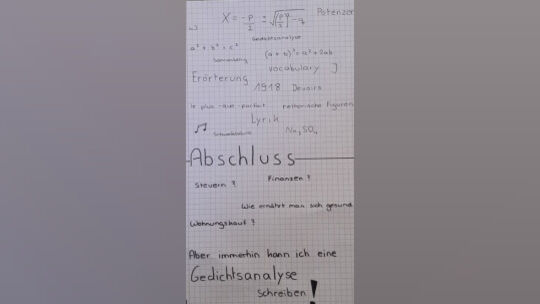 Potenzen
X = -p/2 ± √(p/2)² - q
Gedichtsanalyse
a² + b² = c²
(a + b)² = a² + 2ab
vocabulary
Erörterung
1918 Devoirs
le plus-que-parfait rethorische Figuren
Lyrik
Na₂SO₄
Abschluss
Steuern ?
Finanzen ?
Wie ernährt man sich gesund
Wohnungskauf ?
Aber immerhin kann ich eine
Gedichtsanalyse
Schreiben !